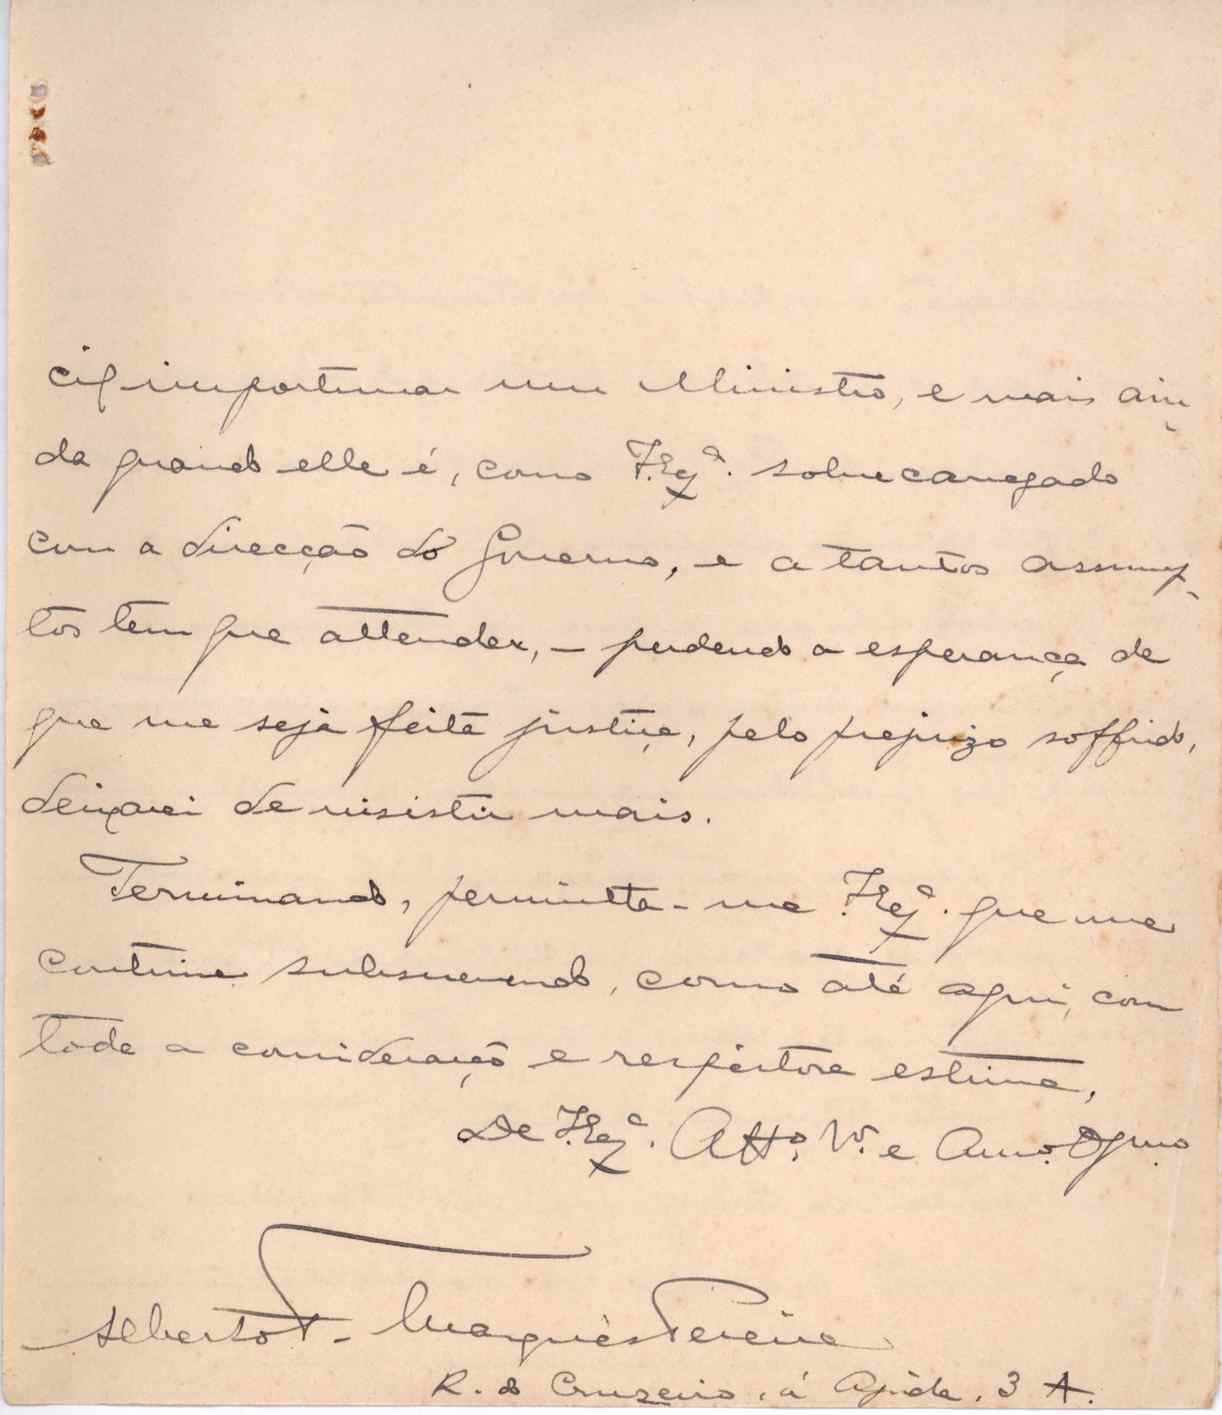 cil importunar um Ministro, e mais ain-
da quando elle é, como V. Exª. sobrecarregado
com a direcção do Governo, e a tantos assump-
tos tem que attender, – perdendo a esperança de
que me seja feita justiça, pelo prejuizo soffrido,
deixarei de insistir mais.
Terminando, permitta-me V. Exª. que me
continue subscrevendo, como até aqui, com
toda a consideração e respeitosa estima,
De V. Exª. Attº. Vº. e Amº. Obgmo
Alberto F. Marquês Pereira
R. do Cruzeiro, á Ajuda, 3 A.